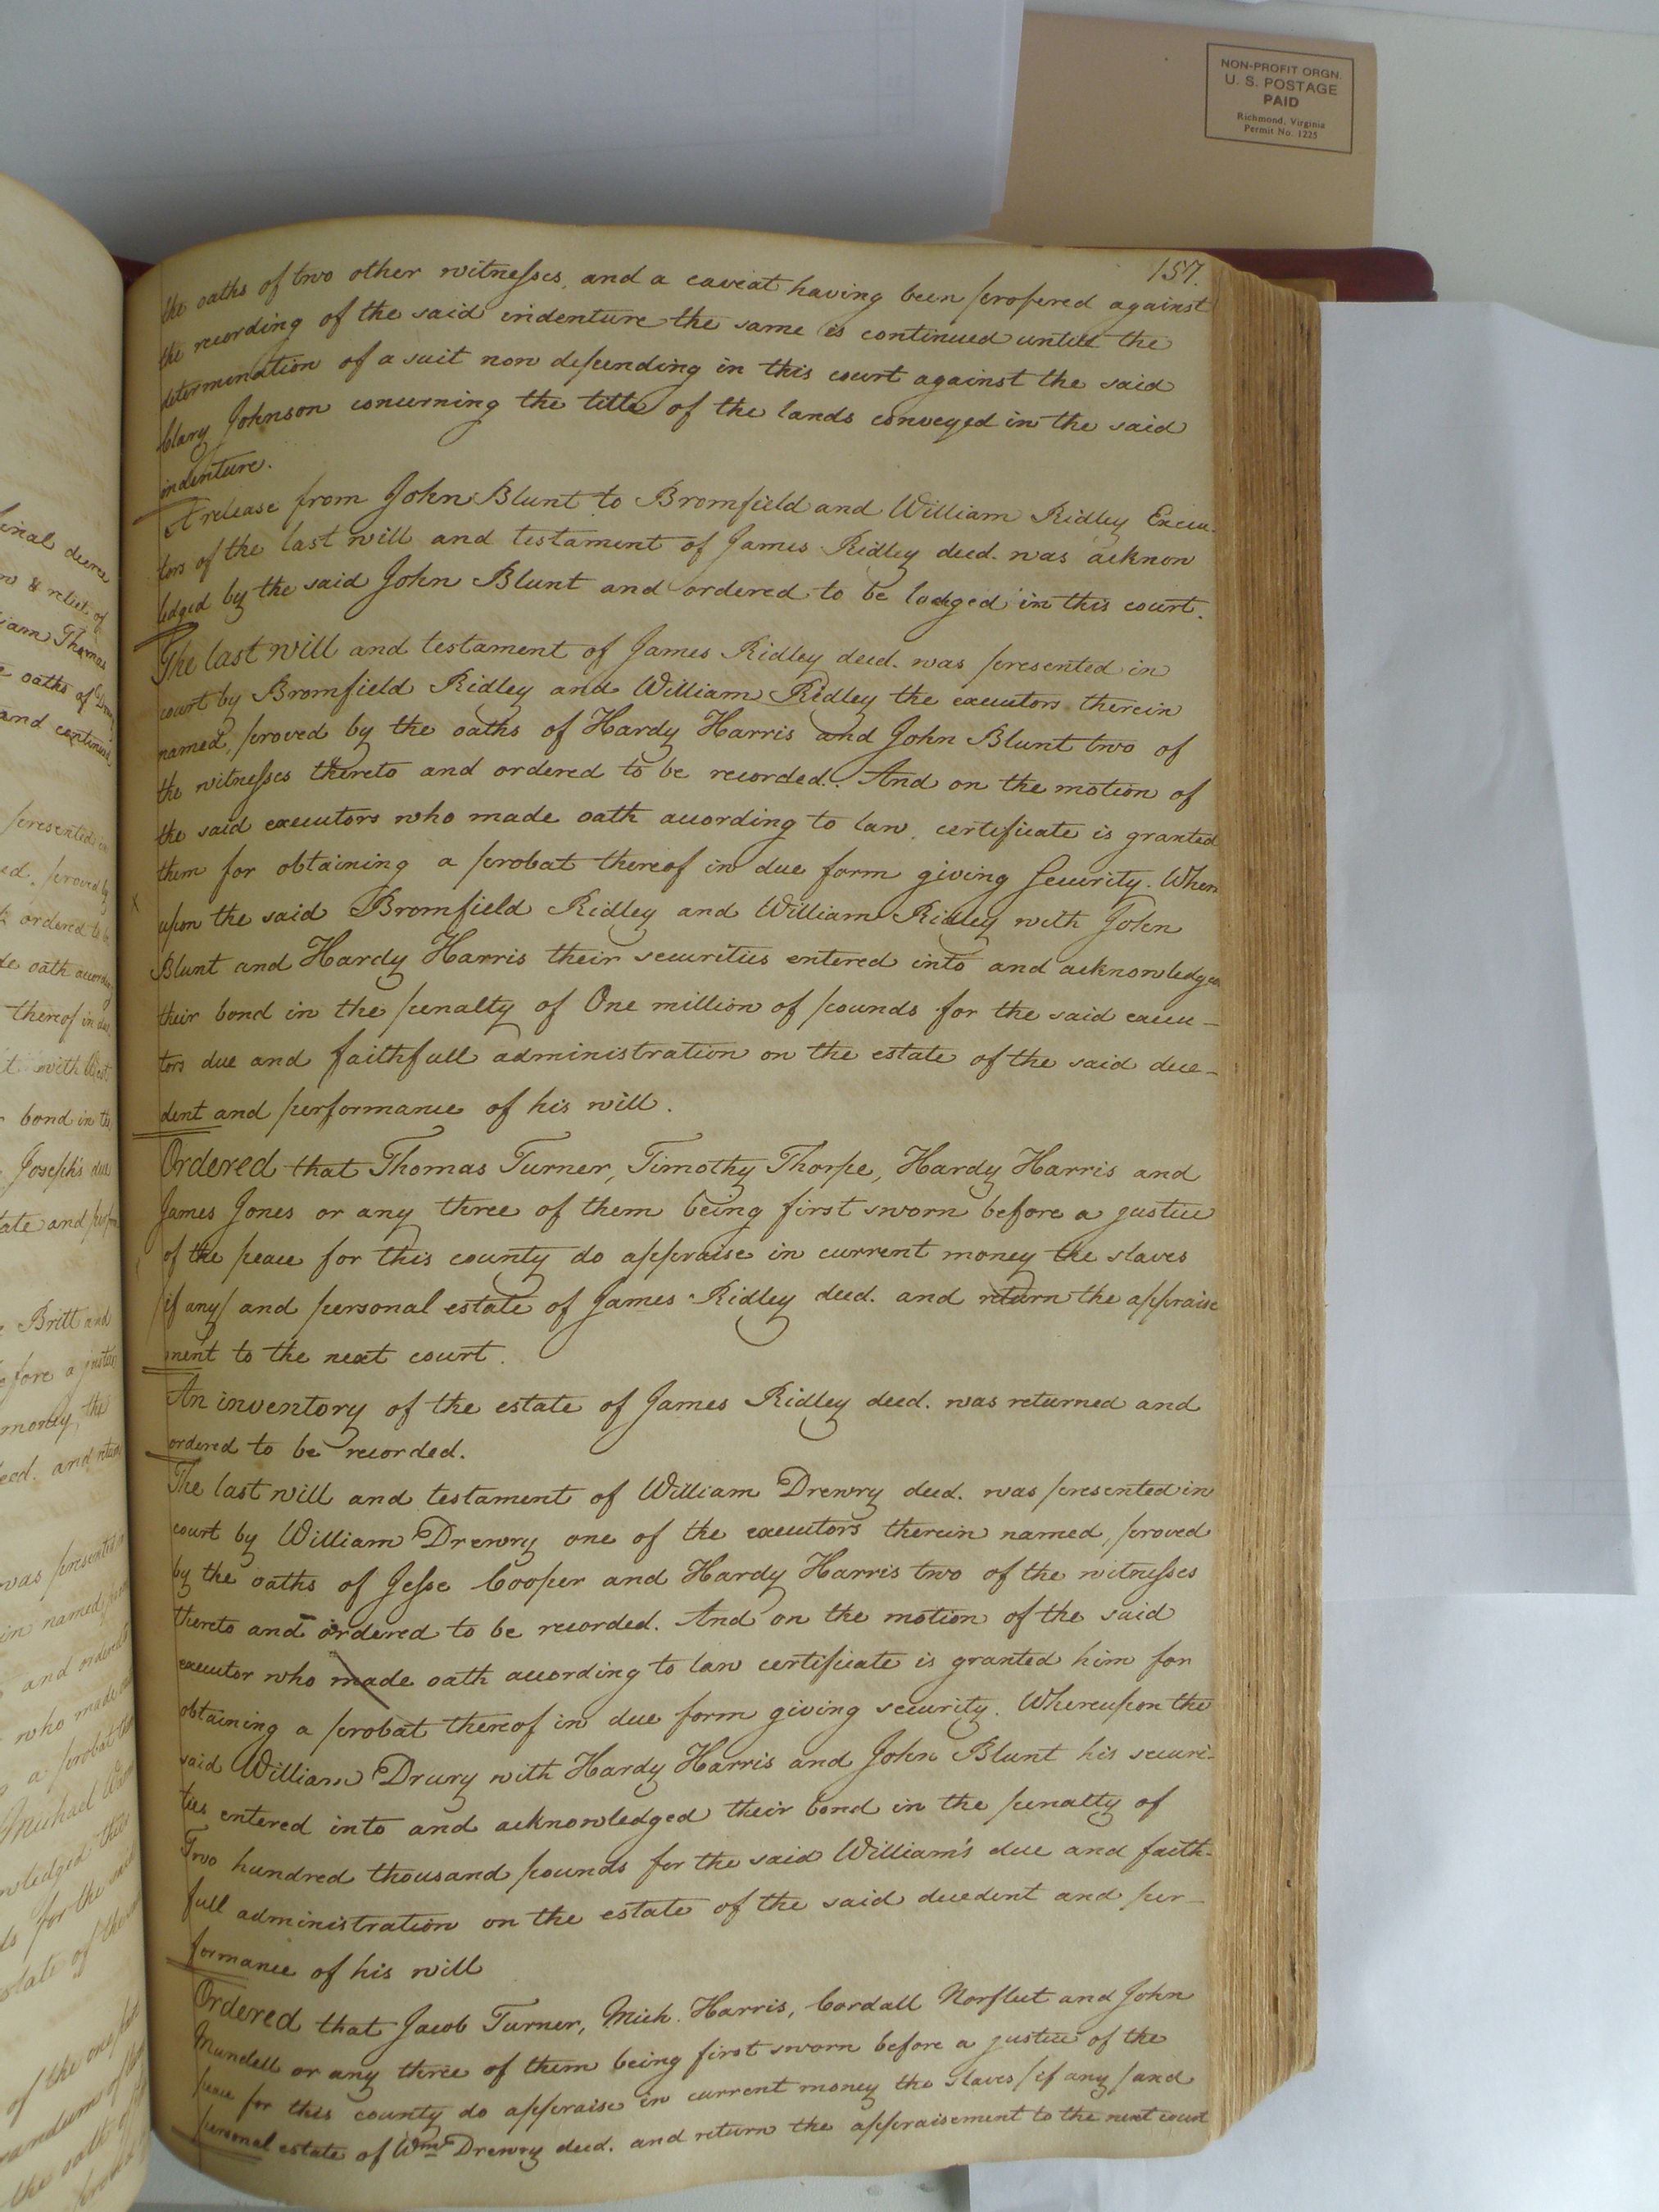 NON-PROFIT ORGN.
U. S. POSTAGE
PAID
Richmond, Virginia
Permit No. 1225
157.
the oaths of two other witnesses, and a caveat having been profered against
the recording of the said indenture the same is continued untill the
determination of a suit now depending in this court against the said
Clary Johnson concerning the title of the lands conveyed in the said
indenture.
A release from John Blunt to Bromfield and William Ridley Execu-
tors of the last will and testament of James Ridley deed. was acknow
ledged by the said John Blunt and ordered to be lodged in this court.
The last will and testament of James Ridley deed. was presented in
court by Bromfield Ridley and William Ridley the executors therein
named, proved by the oaths of Hardy Harris and John Blunt two of
the witnesses thereto and ordered to be recorded. And on the motion of
the said executors who made oath according to law, certificate is granted
them for obtaining a probat thereof in due form giving Security. Where
upon the said Bromfield Ridley and William Ridley with John
Blunt and Hardy Harris their securities entered into and acknowledged
their bond in the penalty of One million of pounds for the said execu-
tors due and faithfull administration on the estate of the said dece-
dent and performance of his will.
Ordered that Thomas Turner, Timothy Thorpe, Hardy Harris and
James Jones or any three of them being first sworn before a justice
of the peace for this county do appraise in current money the slaves
/if any/ and personal estate of James Ridley deed. and return the appraise
ment to the next court.
An inventory of the estate of James Ridley deed. was returned and
ordered to be recorded.
The last will and testament of William Drewry deed. was presented in
court by William Drewry one of the executors therein named, proved
by the oaths of Jesse Cooper and Hardy Harris two of the witnesses
thereto and ordered to be recorded. And on the motion of the said
executor who made oath according to law certificate is granted him for
obtaining a probat thereof in due form giving security. Whereupon the
said William Drury with Hardy Harris and John Blunt his securi-
ties entered into and acknowledged their bond in the penalty of
Two hundred thousand pounds for the said William's due and faith-
full administration on the estate of the said decedent and per-
formance of his will
Ordered that Jacob Turner, Mich. Harris, Cordall Norfleet and John
Mundell or any three of them being first sworn before a justice of the
peace for this county do appraise in current money the slaves /if any/ and
personal estate of Wm Drewry deed. and return the appraisement to the next court